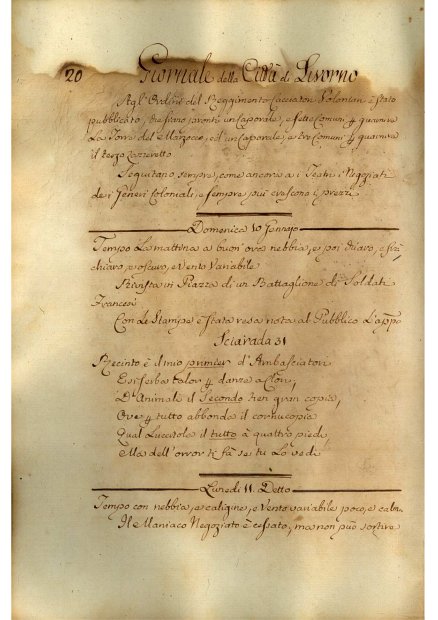 20 Giornale della Città di Livorno
Agl' Ordini del Reggimento Cacciatori Volontari è stato
pubblicato, che siano pronti un Caporale, e sette Comuni p guarnire
La Torre del Marzocco, ed un Caporale, e tre Comuni p guarnire
il terzo Lazzeretto
Seguitano sempre, come ancora a i Teatri i Negoziati
dei Generi Coloniali, e sempre più crescono i prezzi
Domenica 10 Gennajo
Tempo La mattina a buon' ora nebbia, e poi chiaro, e
chiaro, e oscuro, e Vento Variabile
Rivista in Piazza di un Battaglione di Soldati
Francesi
Con Le Stampe è stata resa nota al Pubblico L'app.o
Sciarada 31
Recinto è il mio primier d' Ambasciatori
E si serba talor p danze a
D' Animale il Secondo hen gran copia,
Ove p tutto abbonda il cornucopia
Qual Lucertola il tutto à quattro piedi,
Ma dell' orror ti fà se tu Lo vedi
Lunedi 11. Detto
Tempo con nebbia, e caligine, e Vento variabile poco, e calma
Il Maniaco Negoziato è cessato, ma non può sortire